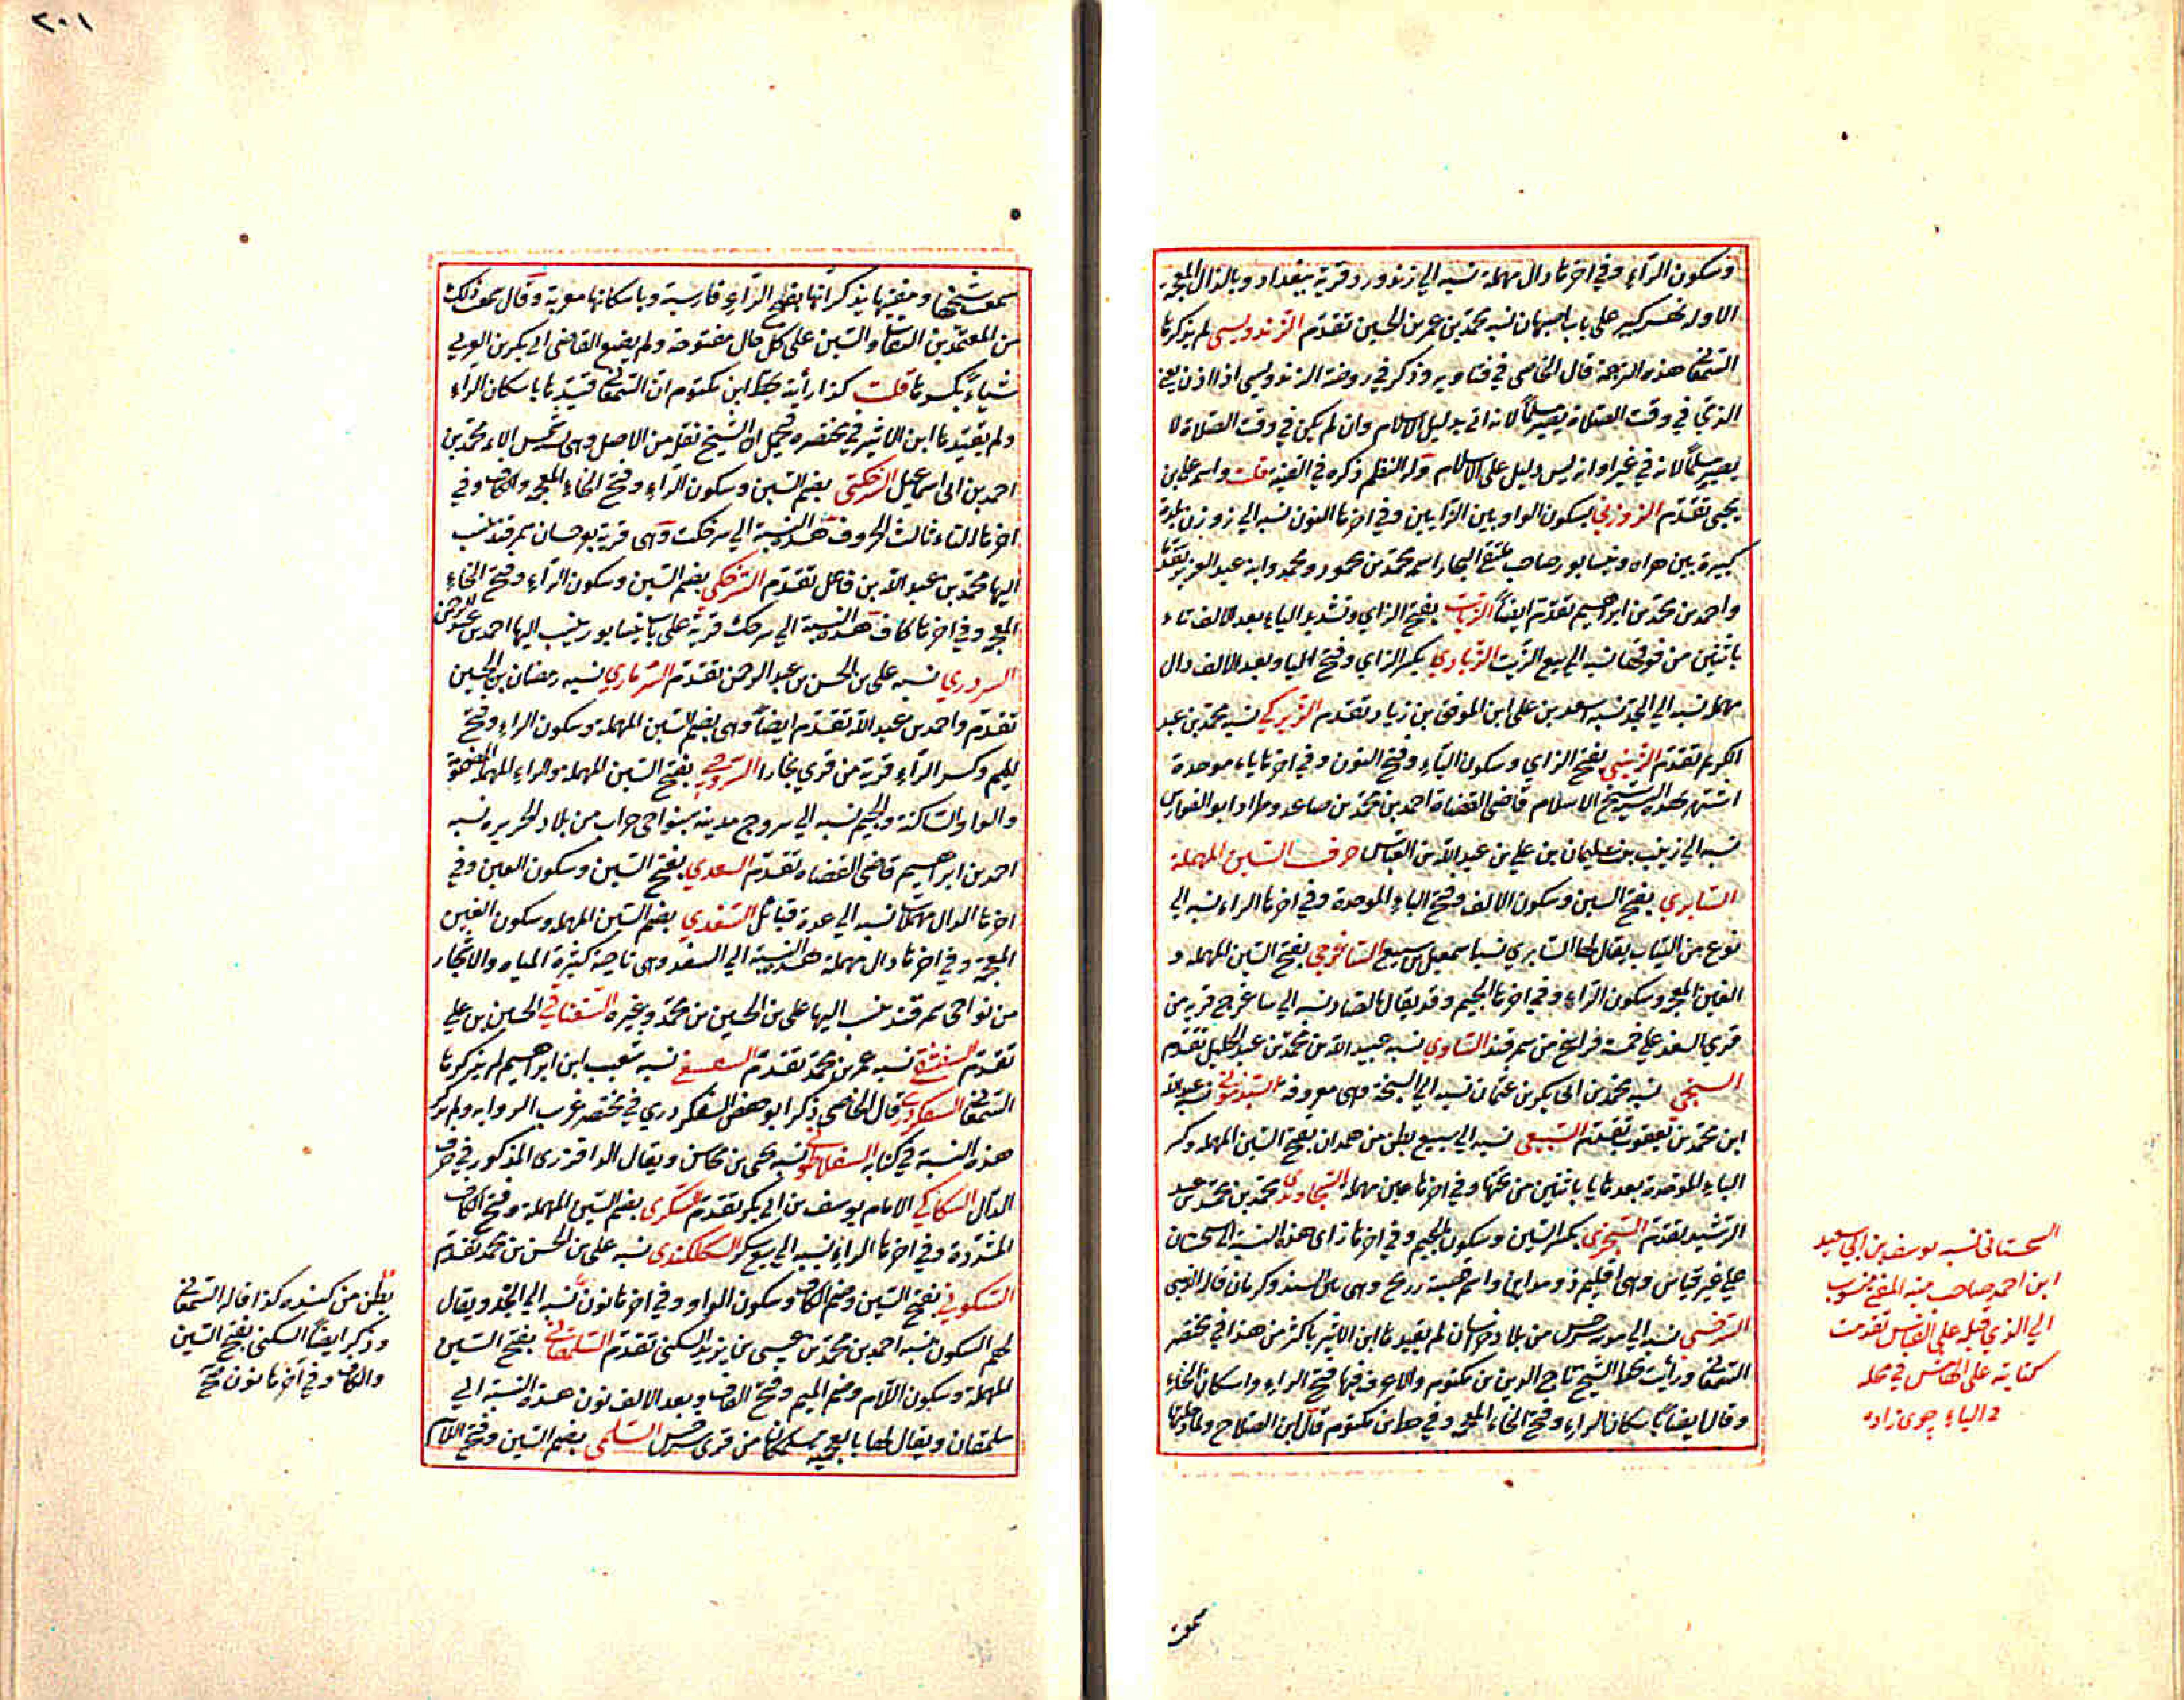 وسكون الراء وفي اخرها دال مهملة نسبه الي زندورد قرية ببغداد وبالذال المعجمة
الاوله نهر كبير على باب اصبهان نسبه محمد بن عمر بن الحسين تقدم الزندويسي لم يذكرها
السمعاني هذه الترجمة قال الخاصي في فتاويه وذكر في روضة الزندويسي اذا اذن
الذمي في وقت الصلاة يصير مسلماً لانه اتى بدليل الاسلام وان لم يكن في وقت الصلاة لا
يصير مسلماً لانه في غير اوانه ليس دليل على الاسلام وله النظم ذكره في القنية قلت واسمه علي بن
يحيى تقدم الزوزني بسكون الواو بين الزايين وفي اخرها النون نسبه الي زوزن بلدة
كبيرة بين هراه ونيسابور صاحب ملتقى البحار اسمه محمد بن محمود ومحمد وابنه عبد العزيز تقدما
واحمد بن محمد بن ابراهيم تقدم ايضاً الزيات بفتح الزاي وتشديد الياء بعد الالف تاء
باثنين من فوقها نسبه الي بيع الزيت الزيادي بكسر الزاي وفتح اليا وبعد الالف دال
مهمله نسبه الي الجد نسبه اسعد بن علي ابن الموفق بن زياد تقدم الزيركي نسبه محمد بن عبد
الكريم تقدم الزينبي بفتح الزاي وسكون الياء وفتح النون وفي اخرها باء موحدة
اشتهر بهذه النسبة شيخ الاسلام قاضي القضاة احمد بن محمد بن صاعد وطراد ابو الفوارس
نسبه الي زينب بنت سليمان بن علي بن عبد الله بن العباس حرف السين المهملة
السابري بفتح السين وسكون الالف وفتح الباء الموحدة وفي اخرها الراء نسبه الي
نوع من الثياب يقال لها السابري نسبه اسمعيل بن سميع الساغرجي بفتح السين المهمله و
الغين المعجمه وسكون الراء وفي اخرها الجيم وقد يقال بالصاد نسبه الي ساغرج قريه من
قرى السغد علي خمسة فراسخ من سمرقند الساوي نسبه عبيد الله بن محمد بن عبد الجليل تقدم
السبخي نسبه محمد بن ابي بكر بن عثمان نسبه الي السبخة وهى معروفه السبذموني نسبه عبد الله
ابن محمد بن يعقوب تقدم السبيعي نسبه الي سبيع بطن من همدان بفتح السين المهمله وكسر
الباء الموحدة بعدها يا باثنين من تحتها وفي اخرها عين مهمله السجاوندي محمد بن محمد بن عبد
الرشيد تقدم السجزي بكسر السين وسكون الجيم وفي اخرها زاى هذه النسبة الي سجستان
علي غير قياس وهى اقليم ذو مداين واسم قصبته زرنج وهى بين السند وكرمان
السرخسي نسبه الي مدينه سرخس من بلاد خراسان لم يقيدها ابن الاثير باكثر من هذا في مختصر
السمعاني ورأيت بخط الشيخ تاج الدين بن مكتوم والاعرف فيها فتح الراء واسكان الخاء
وقال ايضاً باسكان الراء وفتح الخاء المعجمه وفي خط ابن مكتوم قال ابن الصلاح
السجستاني نسبه يوسف بن ابي سعيد
ابن احمد صاحب منية المفتي منسوب
الي الذي قبله على القياس تقدمت
كتابته على الهامش في محله
سمعت
سمعت شيخها ومفتيها يذكر انها بفتح الراء فارسية وباسكانها معربة وقال سمعت ذلك
من المعتمدين الثقات والسين على كل حال مفتوحة ولم يصنع القاضي ابي بكر بن العربي
شياءً بكسرها قلت كذا رأيته بخط ابن مكتوم ان السمعاني قيدها باسكان الراء
ولم يقيدها ابن الاثير في مختصره فيحتمل ان الشيخ نقل من الاصل وهى نسبة شمس الايمة محمد بن
احمد بن ابي اسماعيل السرخكتي بضم السين وسكون الراء وفتح الخاء المعجمه والكاف وفي
اخرها التاء ثالث الحروف هذه النسبة الي سرخكت وهى قرية بغرجستان سمرقند ينسب
اليها محمد بن عبد الله بن فاعل تقدم السرخكي بضم السين وسكون الراء وفتح الخاء
المعجمه وفي اخرها كاف هذه النسبة الي سرخك قرية على باب نيسابور ينسب اليها احمد بن عبد الرحمن
السردري نسبه علي بن الحسن بن عبد الرحمن تقدم السرماري نسبه رمضان بن الحسين
تقدم واحمد بن عبد الله تقدم ايضاً وهى بضم السين المهملة وسكون الراء وفتح
الميم وكسر الراء قرية من قرى بخارا السروجي بفتح السين المهملة والراء المهملة المضمومة
والواو الساكنة والجيم نسبه الي سروج مدينة بنواحى حران من بلاد الجزيره نسبه
احمد بن ابراهيم قاضي القضاه تقدم السعدي بفتح السين وسكون العين وفي
اخرها الدال مهملات نسبه الي عدة قبائل السغدي بضم السين المهمله وسكون الغين
المعجمه وفي اخرها دال مهملة هذه النسبة الي السغد وهى ناحية كثيرة المياه والاشجار
من نواحى سمرقند ينسب اليها علي بن الحسين بن محمد وغيره السغناقي الحسين بن علي
تقدم نسبه عمر بن محمد تقدم نسبه شعيب ابن ابراهيم لم يذكرها
السمعاني السفكردري قال الخاصي ذكر ابو حفص السفكردري في مختصر غريب الروايه ولم يذكر
هذه النسبة في كتابه نسبه يحيى بن ويقال المذكور في حرف
الدال السكاكي الامام يوسف بن ابي بكر تقدم السكري بضم السين المهملة وفتح الكاف
المشددة وفي اخرها الراء نسبه الي بيع سكر السكلكندي نسبه علي بن الحسن بن محمد تقدم
السكوني بفتح السين وضم الكاف وسكون الواو وفي اخرها نون نسبه الي الجد ويقال
لهم السكون نسبه احمد بن محمد بن عيسى بن يزيد السكني تقدم السلمقاني بفتح السين
المهملة وسكون اللام وضم الميم وفتح القاف وبعد الالف نون هذه النسبة الي
سلمقان ويقال لها بالعجمية سلمكان من قرى سرخس السلمى بضم السين وفتح اللام
بطن من كنده كذا قاله السمعاني
وذكر ايضاً السكني بفتح السين
والكاف وفي آخرها نون صح